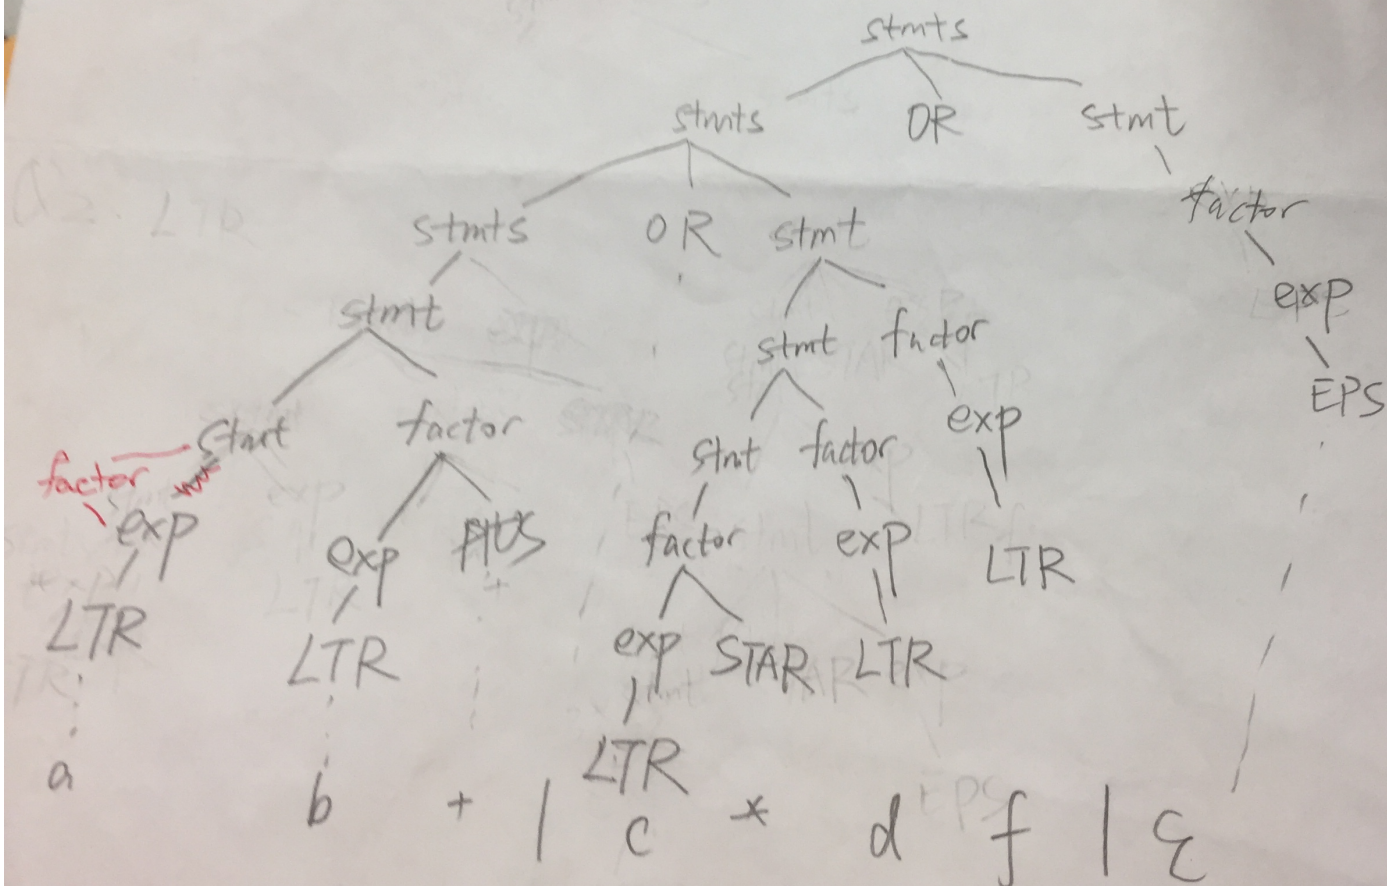 stmts
stmts OR stmt
factor
stmts OR stmt
exp
stmt stmt factor
EPS
stmt factor stmt factor exp
factor
exp exp PLUS factor exp LTR
LTR LTR exp STAR LTR
LTR
a b + | c * d f | ε